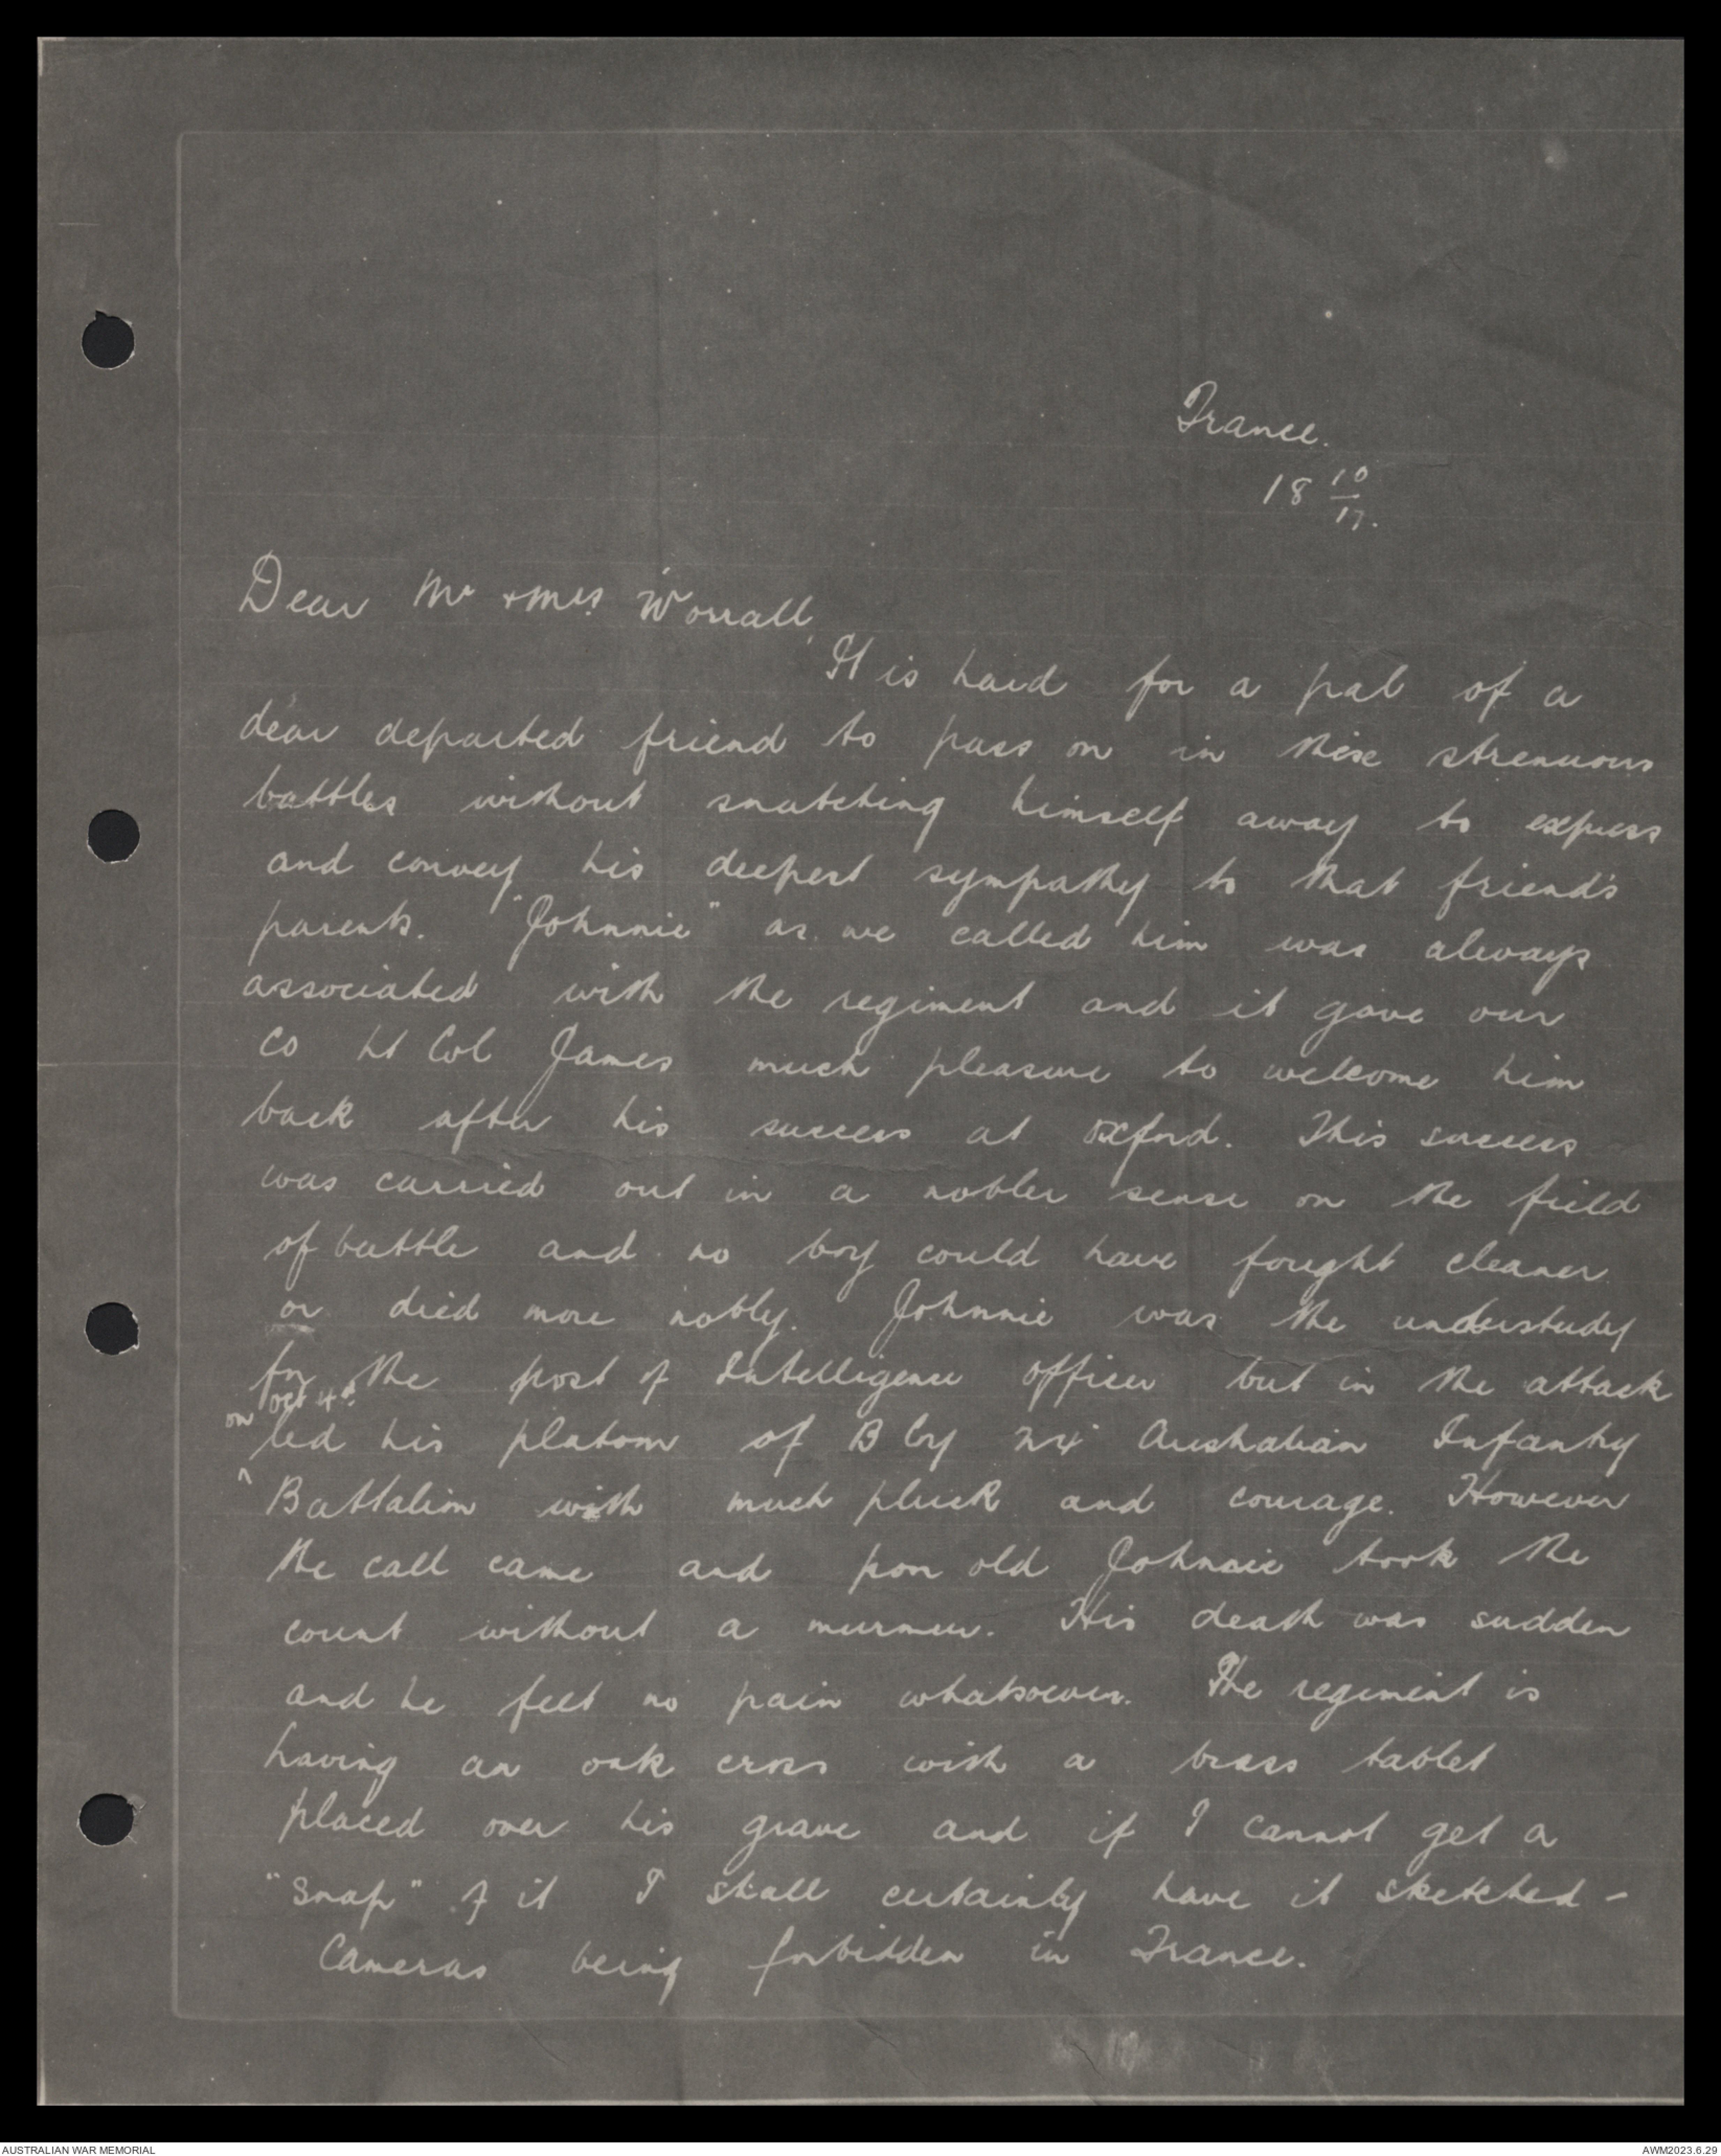 France.
18 10/17.
Dear Mr & Mrs Worrall,
It is hard for a pal of a
dear departed friend to pass on in these strenuous
battles without snatching himself away to express
and convey his deepest sympathy to that friend's
parents. "Johnnie" as we called him was always
associated with the regiment and it gave our
CO Lt Col James much pleasure to welcome him
back after his success at Oxford. This success
was carried out in a nobler sense on the field
of battle and no boy could have fought cleaner
or died more nobly. Johnnie was the understudy
for the post of Intelligence officer but in the attack
on Oct 4th
led his platoon of B Coy 24 Australian Infantry
Battalion with much pluck and courage. However
the call came and poor old Johnnie took the
count without a murmur. His death was sudden
and he felt no pain whatsoever. The regiment is
having an oak cross with a brass tablet
placed over his grave and if I cannot get a
"snap" of it I shall certainly have it sketched -
Cameras being forbidden in France.
AUSTRALIAN WAR MEMORIAL
AWM2023.6.29